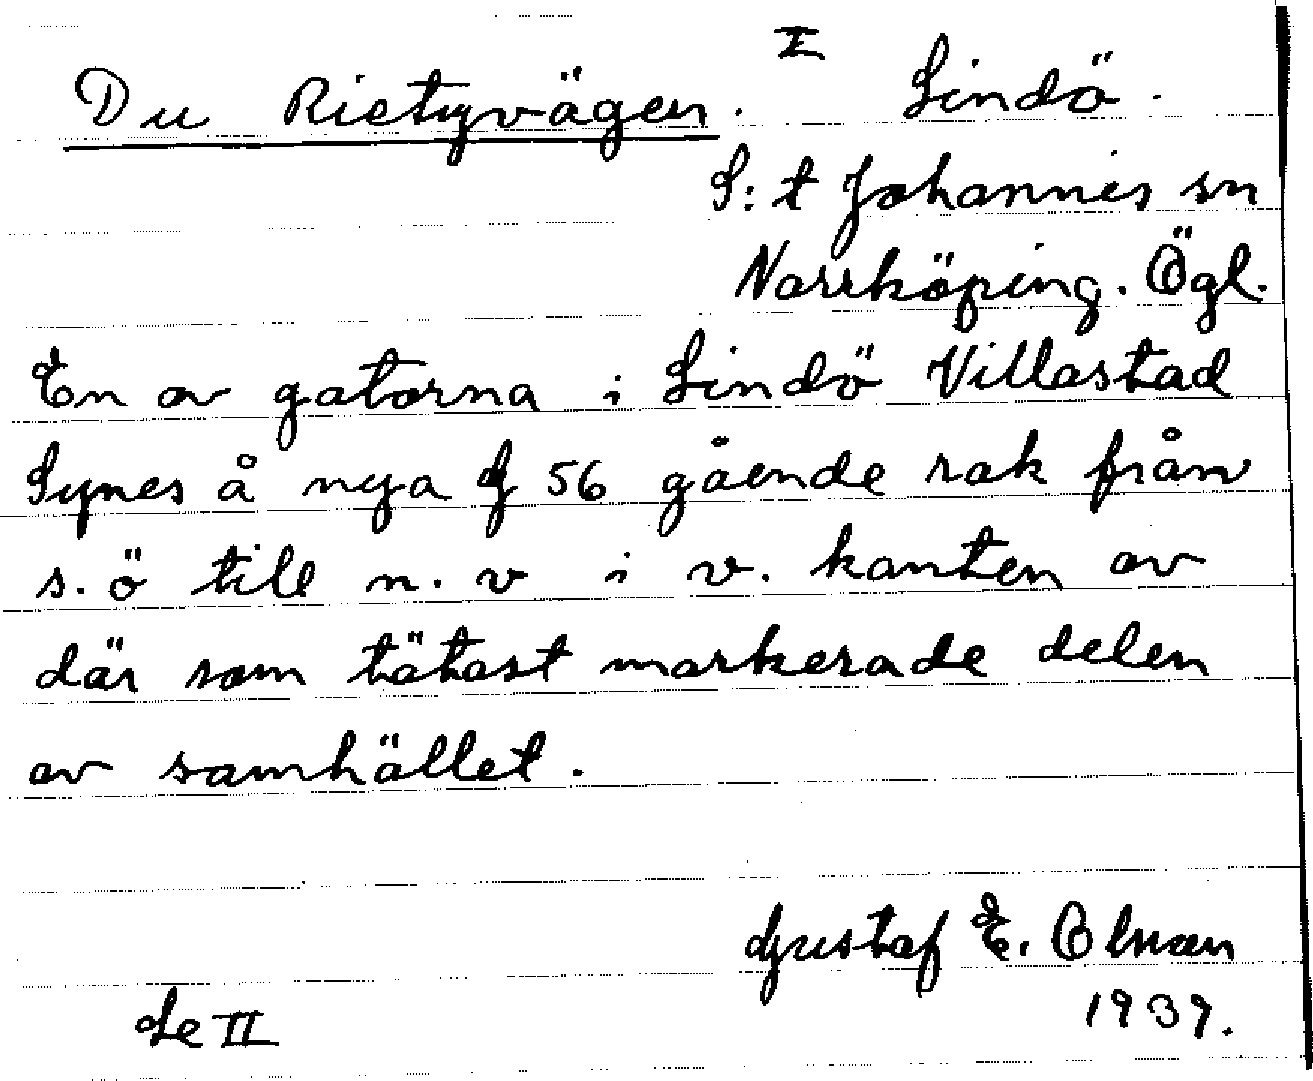 Du Rietzvägen. I Lindö.
S:t Johannes sn
Norrköping. Ögl.
En av gatorna i Lindö Villastad
Synes å nya G 56 gående rak från
s.ö till n.v i v. kanten av
där som tätast markerade delen
av samhället.
Gustaf E. Olman
1937.
Se II